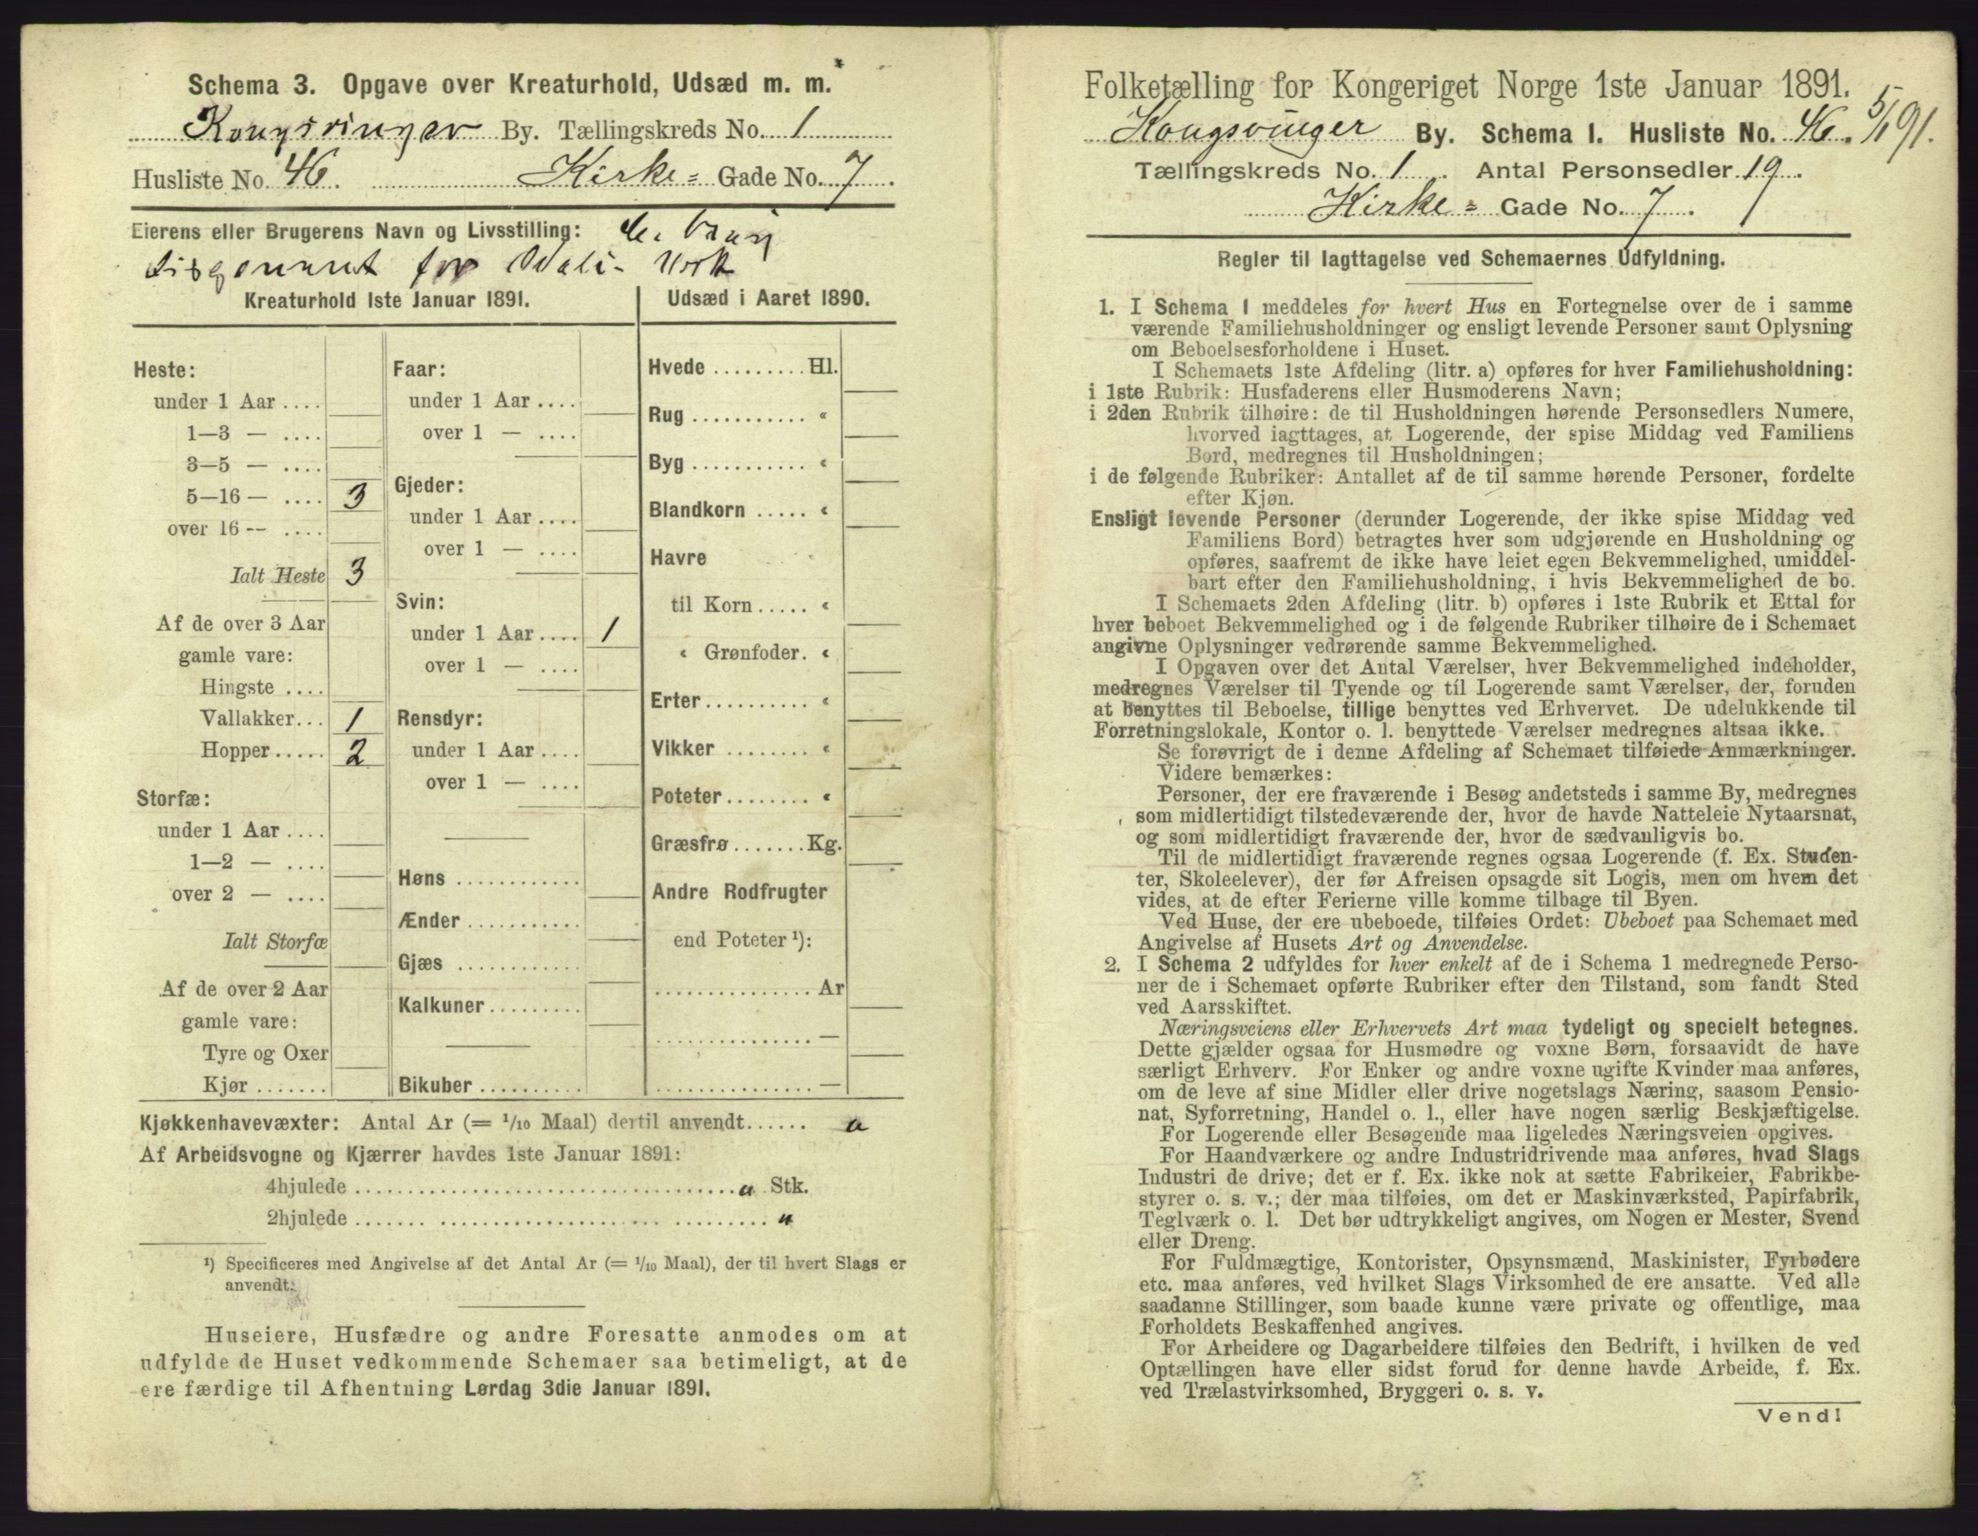 Schema 3. Opgave over Kreaturhold, Udsæd m. m.
Kongsvinger By. Tællingskreds No. 1
Husliste No. 46. Kirke= Gade No. 7.
Eierens eller Brugerens Navn og Livsstilling:
for
Kreaturhold 1ste Januar 1891.
Heste:
under 1 Aar ....
1—3 — ....
3—5 — ....
5—16 — .... 3
over 16 — ....
Ialt Heste 3
Af de over 3 Aar
gamle vare:
Hingste ....
Vallakker... 1
Hopper..... 2
Storfæ:
under 1 Aar ....
1—2 — ....
over 2 — ....
Ialt Storfæ
Af de over 2 Aar
gamle vare:
Tyre og Oxer
Kjør .......
Faar:
under 1 Aar ....
over 1 — ....
Gjeder:
under 1 Aar ....
over 1 — ....
Svin:
under 1 Aar .... 1
over 1 — ....
Rensdyr:
under 1 Aar ....
over 1 — ....
Høns ............
Ænder ...........
Gjæs ............
Kalkuner.........
Bikuber ..........
Udsæd i Aaret 1890.
Hvede ......... Hl.
Rug ........... "
Byg ........... "
Blandkorn ..... "
Havre
til Korn..... "
" Grønfoder. "
Erter.......... "
Vikker ........ "
Poteter........ "
Græsfrø....... Kg.
Andre Rodfrugter
end Poteter ¹):
............... Ar
............... —
............... —
Kjøkkenhavevæxter: Antal Ar (= 1/10 Maal) dertil anvendt...... "
Af Arbeidsvogne og Kjærrer havdes 1ste Januar 1891:
4hjulede ................................... " Stk.
2hjulede ................................... "
¹) Specificeres med Angivelse af det Antal Ar (= 1/10 Maal), der til hvert Slags er
anvendt.
Huseiere, Husfædre og andre Foresatte anmodes om at
udfylde de Huset vedkommende Schemaer saa betimeligt, at de
ere færdige til Afhentning Lørdag 3die Januar 1891.
Folketælling for Kongeriget Norge 1ste Januar 1891.
5/1 91.
Kongsvinger By. Schema 1. Husliste No. 46.
Tællingskreds No. 1. Antal Personsedler 19.
Kirke= Gade No. 7.
Regler til Iagttagelse ved Schemaernes Udfyldning.
1. I Schema 1 meddeles for hvert Hus en Fortegnelse over de i samme
værende Familiehusholdninger og ensligt levende Personer samt Oplysning
om Beboelsesforholdene i Huset.
I Schemaets 1ste Afdeling (litr. a) opføres for hver Familiehusholdning:
i 1ste Rubrik: Husfaderens eller Husmoderens Navn;
i 2den Rubrik tilhøire: de til Husholdningen hørende Personsedlers Numere,
hvorved iagttages, at Logerende, der spise Middag ved Familiens
Bord, medregnes til Husholdningen;
i de følgende Rubriker: Antallet af de til samme hørende Personer, fordelte
efter Kjøn.
Ensligt levende Personer (derunder Logerende, der ikke spise Middag ved
Familiens Bord) betragtes hver som udgjørende en Husholdning og
opføres, saafremt de ikke have leiet egen Bekvemmelighed, umiddel-
bart efter den Familiehusholdning, i hvis Bekvemmelighed de bo.
I Schemaets 2den Afdeling (litr. b) opføres i 1ste Rubrik et Ettal for
hver beboet Bekvemmelighed og i de følgende Rubriker tilhøire de i Schemaet
angivne Oplysninger vedrørende samme Bekvemmelighed.
I Opgaven over det Antal Værelser, hver Bekvemmelighed indeholder,
medregnes Værelser til Tyende og til Logerende samt Værelser, der, foruden
at benyttes til Beboelse, tillige benyttes ved Erhvervet. De udelukkende til
Forretningslokale, Kontor o. l. benyttede Værelser medregnes altsaa ikke.
Se forøvrigt de i denne Afdeling af Schemaet tilføiede Anmærkninger.
Videre bemærkes:
Personer, der ere fraværende i Besøg andetsteds i samme By, medregnes
som midlertidigt tilstedeværende der, hvor de havde Natteleie Nytaarsnat,
og som midlertidigt fraværende der, hvor de sædvanligvis bo.
Til de midlertidigt fraværende regnes ogsaa Logerende (f. Ex. Studen-
ter, Skoleelever), der før Afreisen opsagde sit Logis, men om hvem det
vides, at de efter Ferierne ville komme tilbage til Byen.
Ved Huse, der ere ubeboede, tilføies Ordet: Ubeboet paa Schemaet med
Angivelse af Husets Art og Anvendelse.
2. I Schema 2 udfyldes for hver enkelt af de i Schema 1 medregnede Perso-
ner de i Schemaet opførte Rubriker efter den Tilstand, som fandt Sted
ved Aarsskiftet.
Næringsveiens eller Erhvervets Art maa tydeligt og specielt betegnes.
Dette gjælder ogsaa for Husmødre og voxne Børn, forsaavidt de have
særligt Erhverv. For Enker og andre voxne ugifte Kvinder maa anføres,
om de leve af sine Midler eller drive nogetslags Næring, saasom Pensio-
nat, Syforretning, Handel o. l., eller have nogen særlig Beskjæftigelse.
For Logerende eller Besøgende maa ligeledes Næringsveien opgives.
For Haandværkere og andre Industridrivende maa anføres, hvad Slags
Industri de drive; det er f. Ex. ikke nok at sætte Fabrikeier, Fabrikbe-
styrer o. s. v.; der maa tilføies, om det er Maskinværksted, Papirfabrik,
Teglværk o. l. Det bør udtrykkeligt angives, om Nogen er Mester, Svend
eller Dreng.
For Fuldmægtige, Kontorister, Opsynsmænd, Maskinister, Fyrbødere
etc. maa anføres, ved hvilket Slags Virksomhed de ere ansatte. Ved alle
saadanne Stillinger, som baade kunne være private og offentlige, maa
Forholdets Beskaffenhed angives.
For Arbeidere og Dagarbeidere tilføies den Bedrift, i hvilken de ved
Optællingen have eller sidst forud for denne havde Arbeide, f. Ex.
ved Trælastvirksomhed, Bryggeri o. s. v.
Vend!